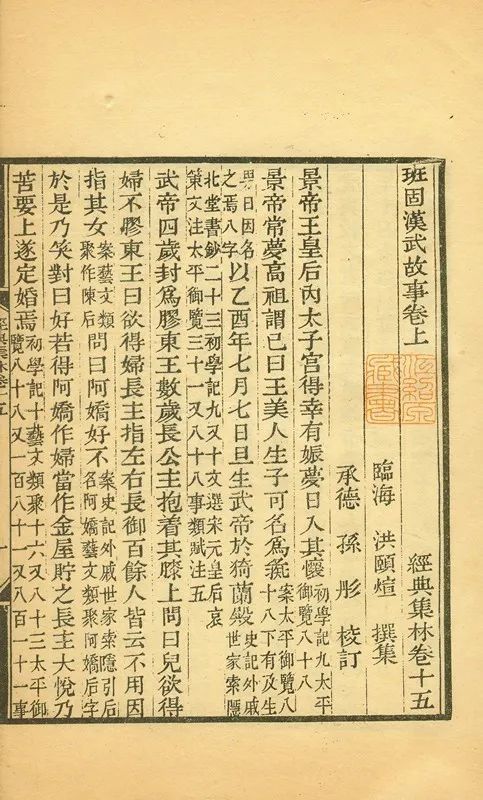 班固漢武故事卷上　經典集林卷十五
臨海　洪頤煊　撰集
承德　孫彤　校訂
景帝王皇后內太子宮得幸有娠夢日入其懷初學記九太平御覽八十八
景帝常夢高祖謂已曰王美人生子可名爲彘案太平御覽八十八下有及生
日因名之焉八字以乙酉年七月七日旦生武帝於猗蘭殿史記外戚世家索隱
北堂書鈔二十三初學記九又十文選宋元皇后哀策文注太平御覽三十一又八十八事類賦注五
武帝四歲封爲膠東王數歲長公主抱着其膝上問曰兒欲得
婦不膠東王曰欲得婦長主指左右長御百餘人皆云不用因
指其女案藝文類聚作陳后問曰阿嬌好不案史記外戚世家索隱引后名阿嬌藝文類聚阿嬌后字
於是乃笑對曰好若得阿嬌作婦當作金屋貯之長主大悅乃
苦要上遂定婚焉初學記十藝文類聚十六又八十三太平御覽八十八又一百八十一又八百一十一事